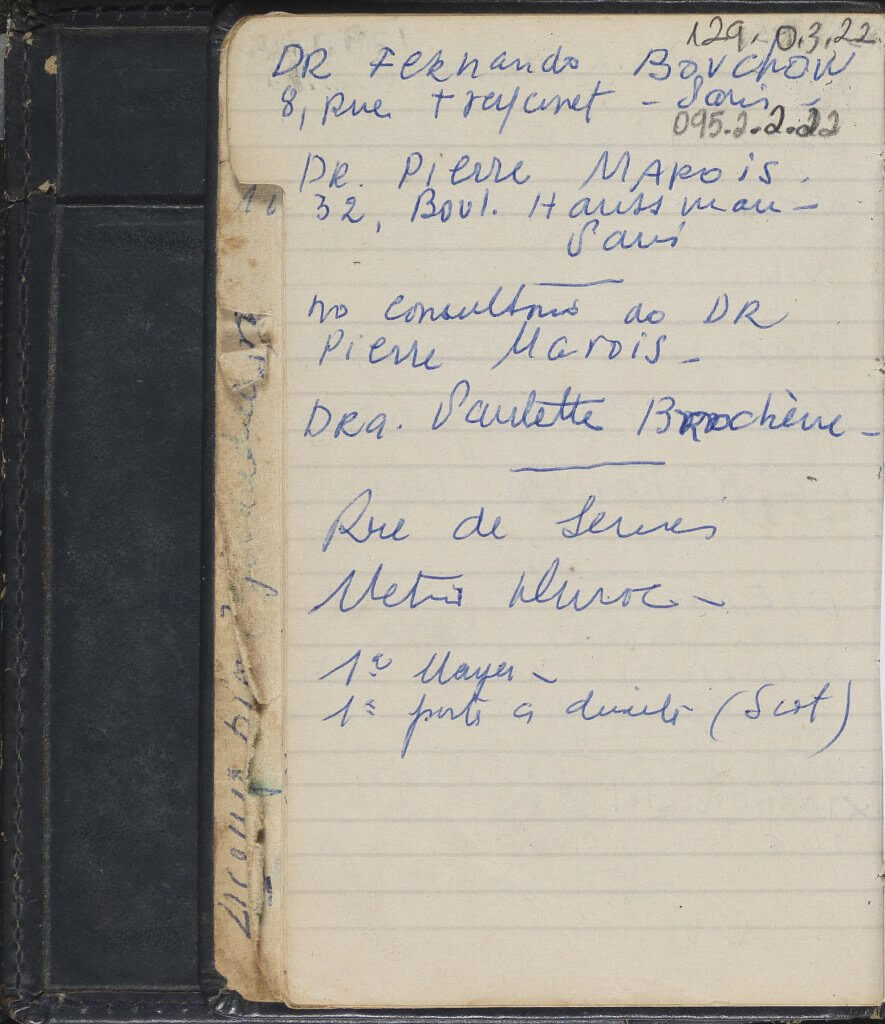 129.0.3.22
DR Fernando Bovchon
8, Rue Treycinet - Paris -
095.2.2.22
DR. Pierre MAROIS.
32, Boul. Haussman -
Paris
no consultorio do DR
Pierre Marois -
DRa. Paulette Brochène -
Rue de Sevres
Metrô Duroc -
1º
1ª porta à direita (Scot)